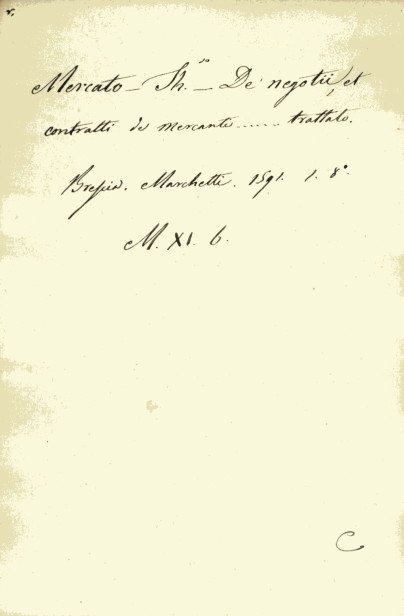 Mercato - Th.so - De' negotii, et
contratti de mercanti ...... trattato.
Brescia. Marchetti. 1591. 1. 8°.
M. XI. 6.
C